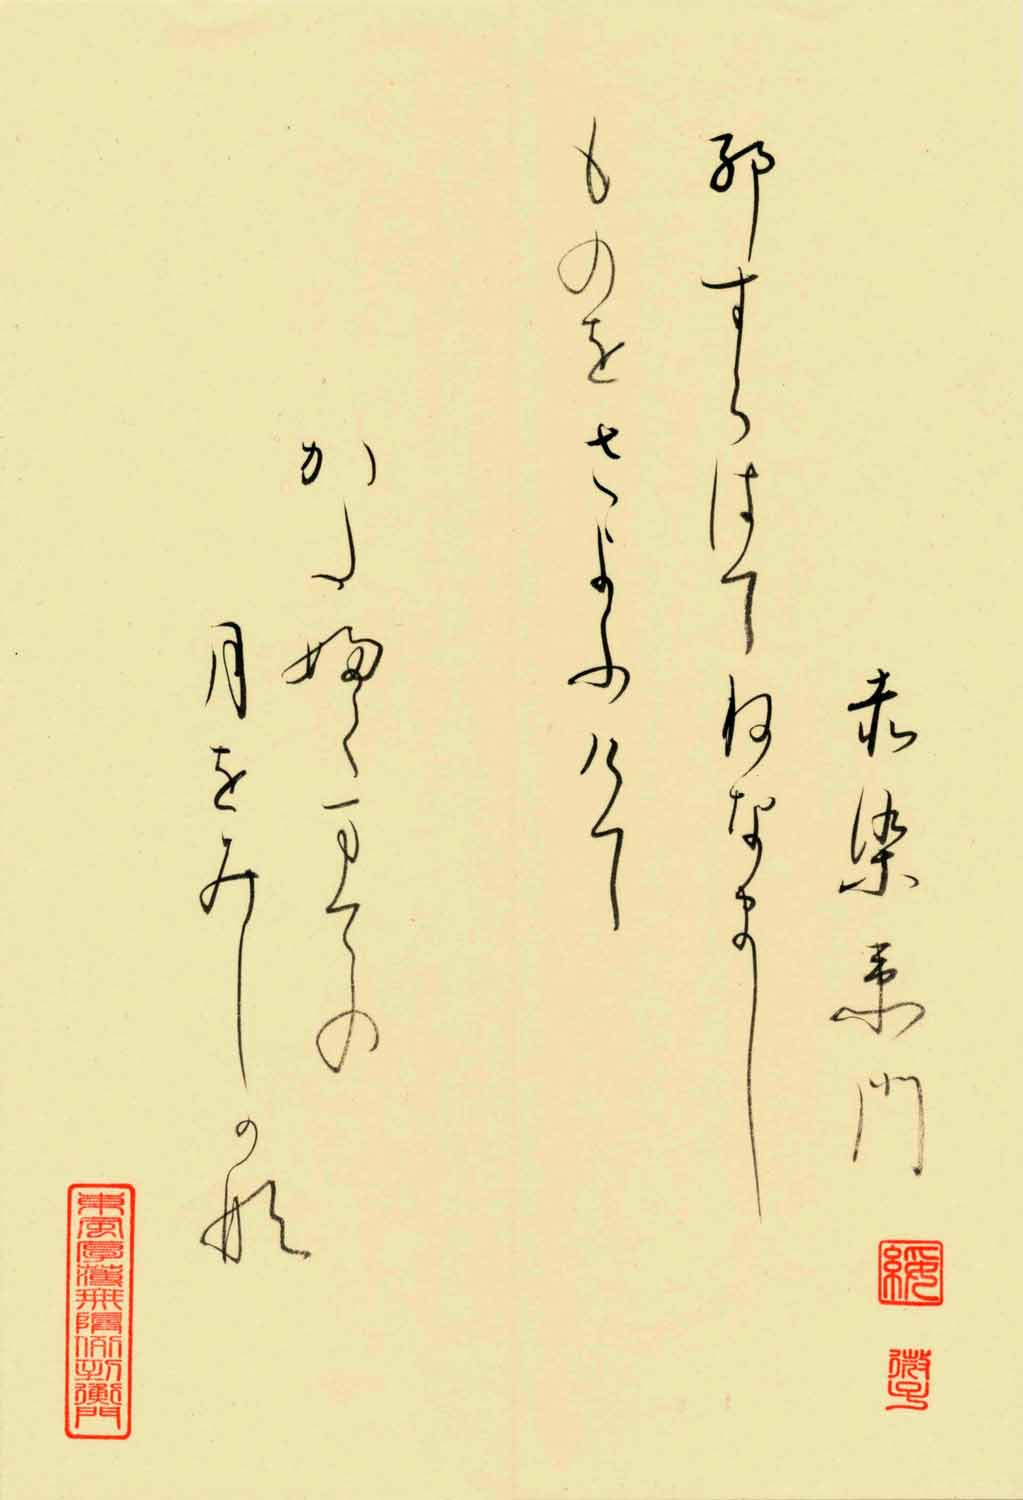 赤染衛門
耶すらはてねなまし
ものをさよふけて
かた婦くまての
月をみし可那